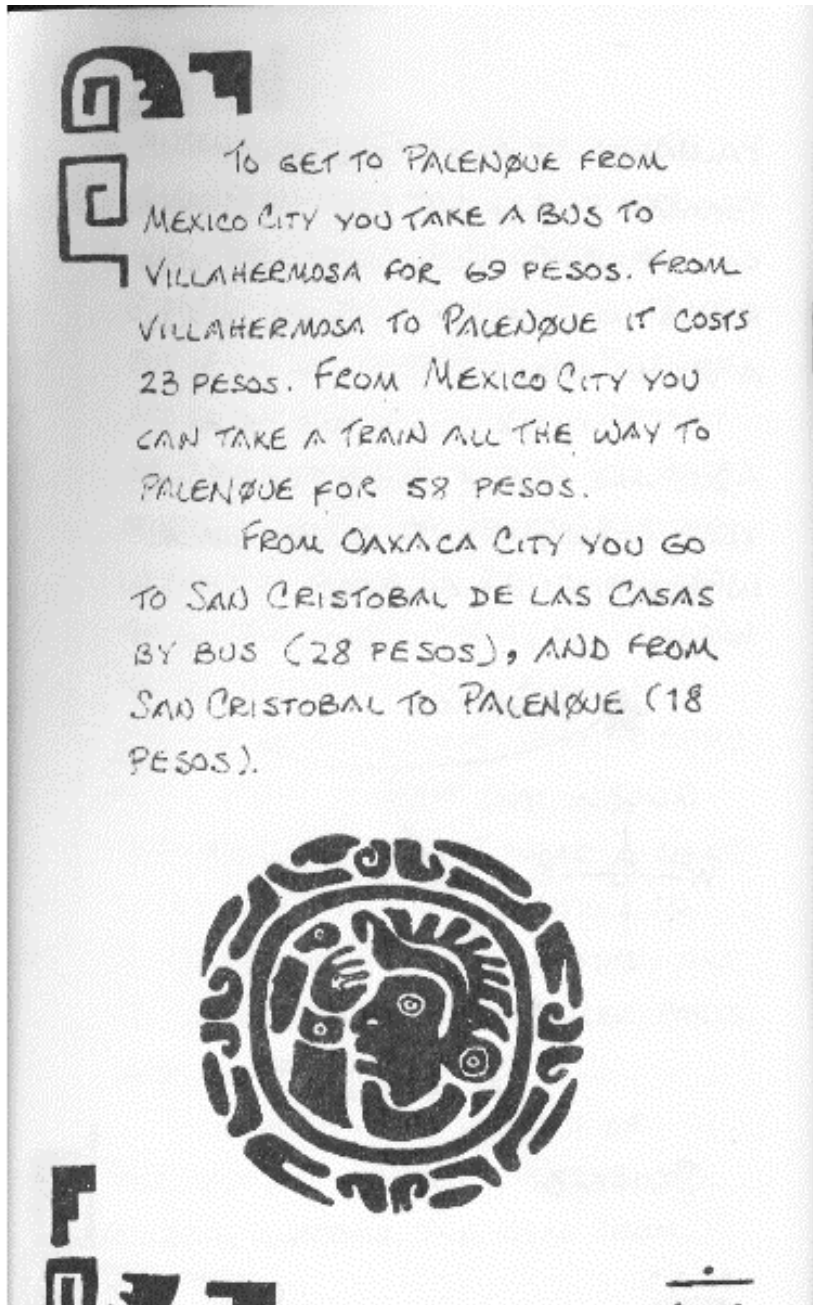 TO GET TO PALENQUE FROM
MEXICO CITY YOU TAKE A BUS TO
VILLAHERMOSA FOR 69 PESOS. FROM
VILLAHERMOSA TO PALENQUE IT COSTS
23 PESOS. FROM MEXICO CITY YOU
CAN TAKE A TRAIN ALL THE WAY TO
PALENQUE FOR 58 PESOS.
FROM OAXACA CITY YOU GO
TO SAN CRISTOBAL DE LAS CASAS
BY BUS (28 PESOS), AND FROM
SAN CRISTOBAL TO PALENQUE (18
PESOS).